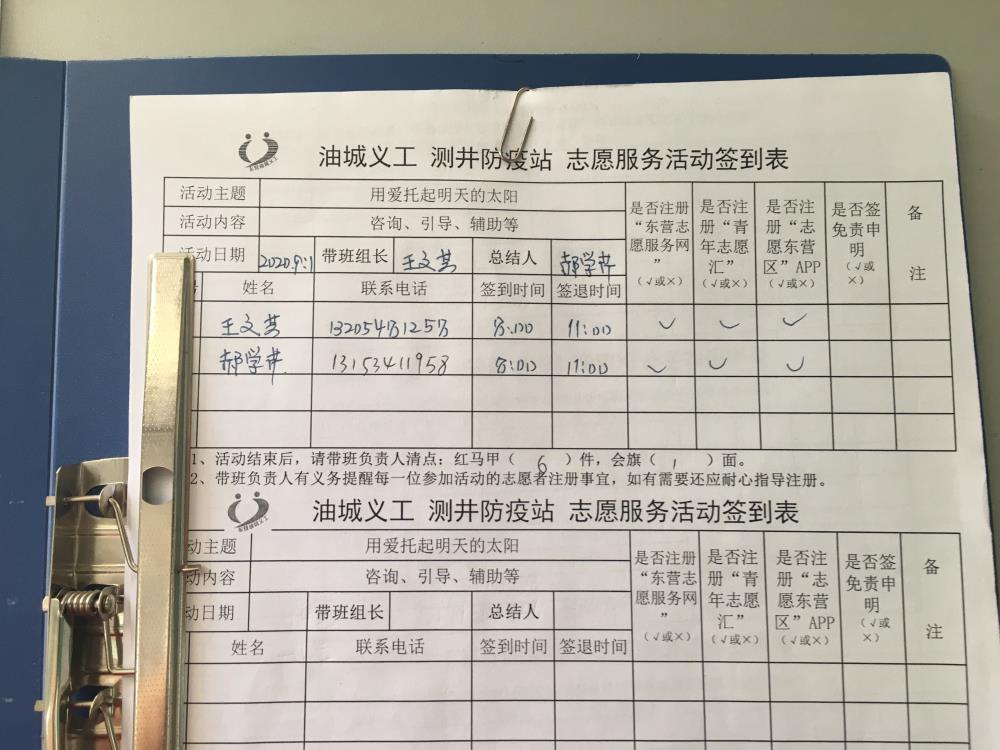 油城义工 测井防疫站 志愿服务活动签到表
活动主题 用爱托起明天的太阳 是否注册“东营志愿服务网”（√或×） 是否注册“青年志愿汇”（√或×） 是否注册“志愿东营区”APP（√或×） 是否签免责申明（√或×） 备注
活动内容 咨询、引导、辅助等
活动日期 2020.9.1 带班组长 王文芸 总结人 郝学井
号 姓名 联系电话 签到时间 签退时间
王文芸 13205481258 8:00 11:00 √ √ √
郝学井 13153411958 8:00 11:00 √ √ √
1、活动结束后，请带班负责人清点：红马甲（ 6 ）件，会旗（ 1 ）面。
2、带班负责人有义务提醒每一位参加活动的志愿者注册事宜，如有需要还应耐心指导注册。
油城义工 测井防疫站 志愿服务活动签到表
动主题 用爱托起明天的太阳 是否注册“东营志愿服务网”（√或×） 是否注册“青年志愿汇”（√或×） 是否注册“志愿东营区”APP（√或×） 是否签免责申明（√或×） 备注
动内容 咨询、引导、辅助等
动日期 带班组长 总结人
姓名 联系电话 签到时间 签退时间